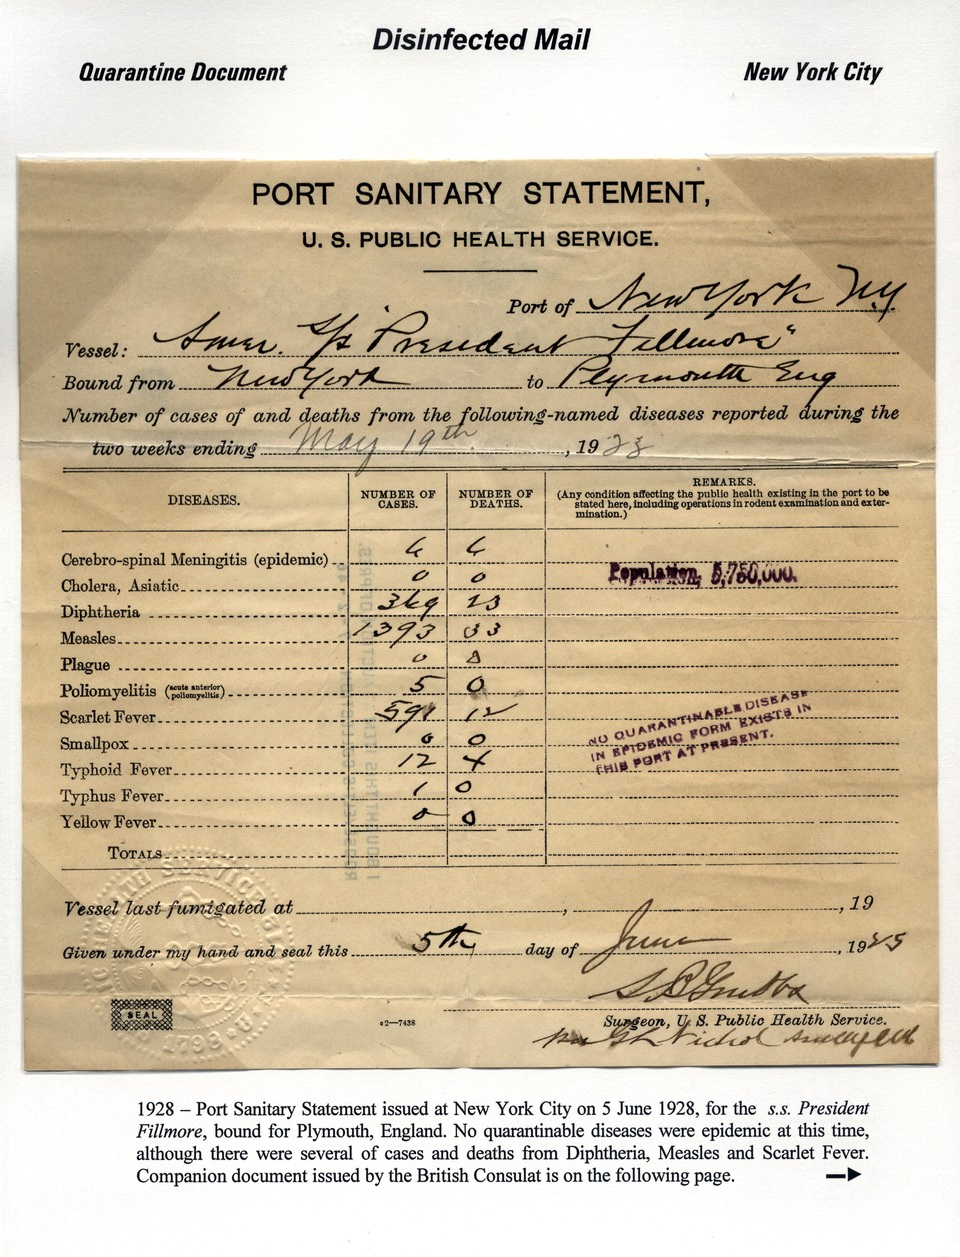 Disinfected Mail
Quarantine Document New York City
PORT SANITARY STATEMENT,
U. S. PUBLIC HEALTH SERVICE.
Port of New York N.Y.
Vessel: Amer. S/s "President Fillmore"
Bound from New York to Plymouth Eng
Number of cases of and deaths from the following-named diseases reported during the
two weeks ending May 19th, 1928
DISEASES. NUMBER OF CASES. NUMBER OF DEATHS. REMARKS.
(Any condition affecting the public health existing in the port to be
stated here, including operations in rodent examination and exter-
mination.)
Cerebro-spinal Meningitis (epidemic) 6 6
Population, 5,750,000.
Cholera, Asiatic 0 0
Diphtheria 369 23
Measles 1393 33
Plague 0 0
Poliomyelitis (acute anterior poliomyelitis) 5 0
Scarlet Fever 591 12
NO QUARANTINABLE DISEASE
IN EPIDEMIC FORM EXISTS IN
THIS PORT AT PRESENT.
Smallpox 0 0
Typhoid Fever 12 4
Typhus Fever 1 0
Yellow Fever 0 0
TOTALS
Vessel last fumigated at , , 19
Given under my hand and seal this 5th day of June, 19
SEAL
1798
Surgeon, U. S. Public Health Service.
1928 – Port Sanitary Statement issued at New York City on 5 June 1928, for the s.s. President
Fillmore, bound for Plymouth, England. No quarantinable diseases were epidemic at this time,
although there were several of cases and deaths from Diphtheria, Measles and Scarlet Fever.
Companion document issued by the British Consulat is on the following page.